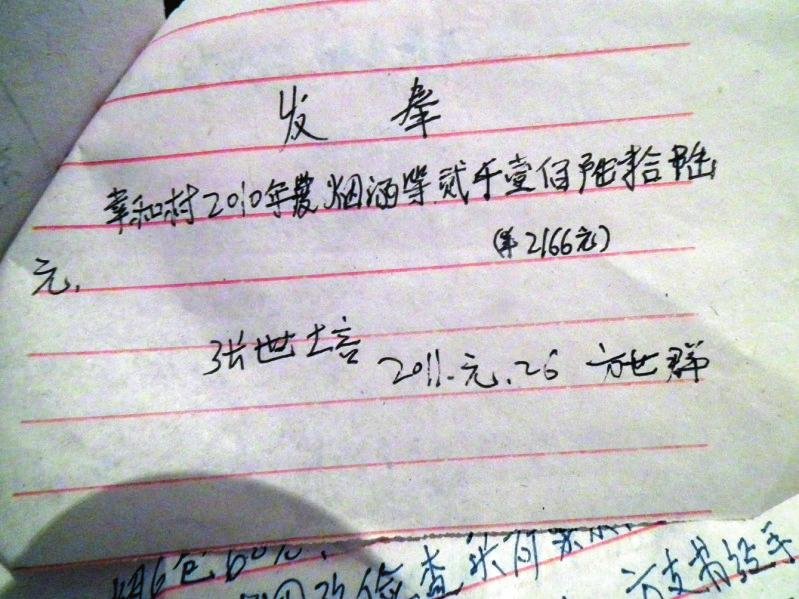 发 奉
幸和村2010年度烟酒等贰千壹佰陆拾陆
(¥2166元)
元.
张世培 2011.元.26 方世群
烟6包60%.
查
方支书经手